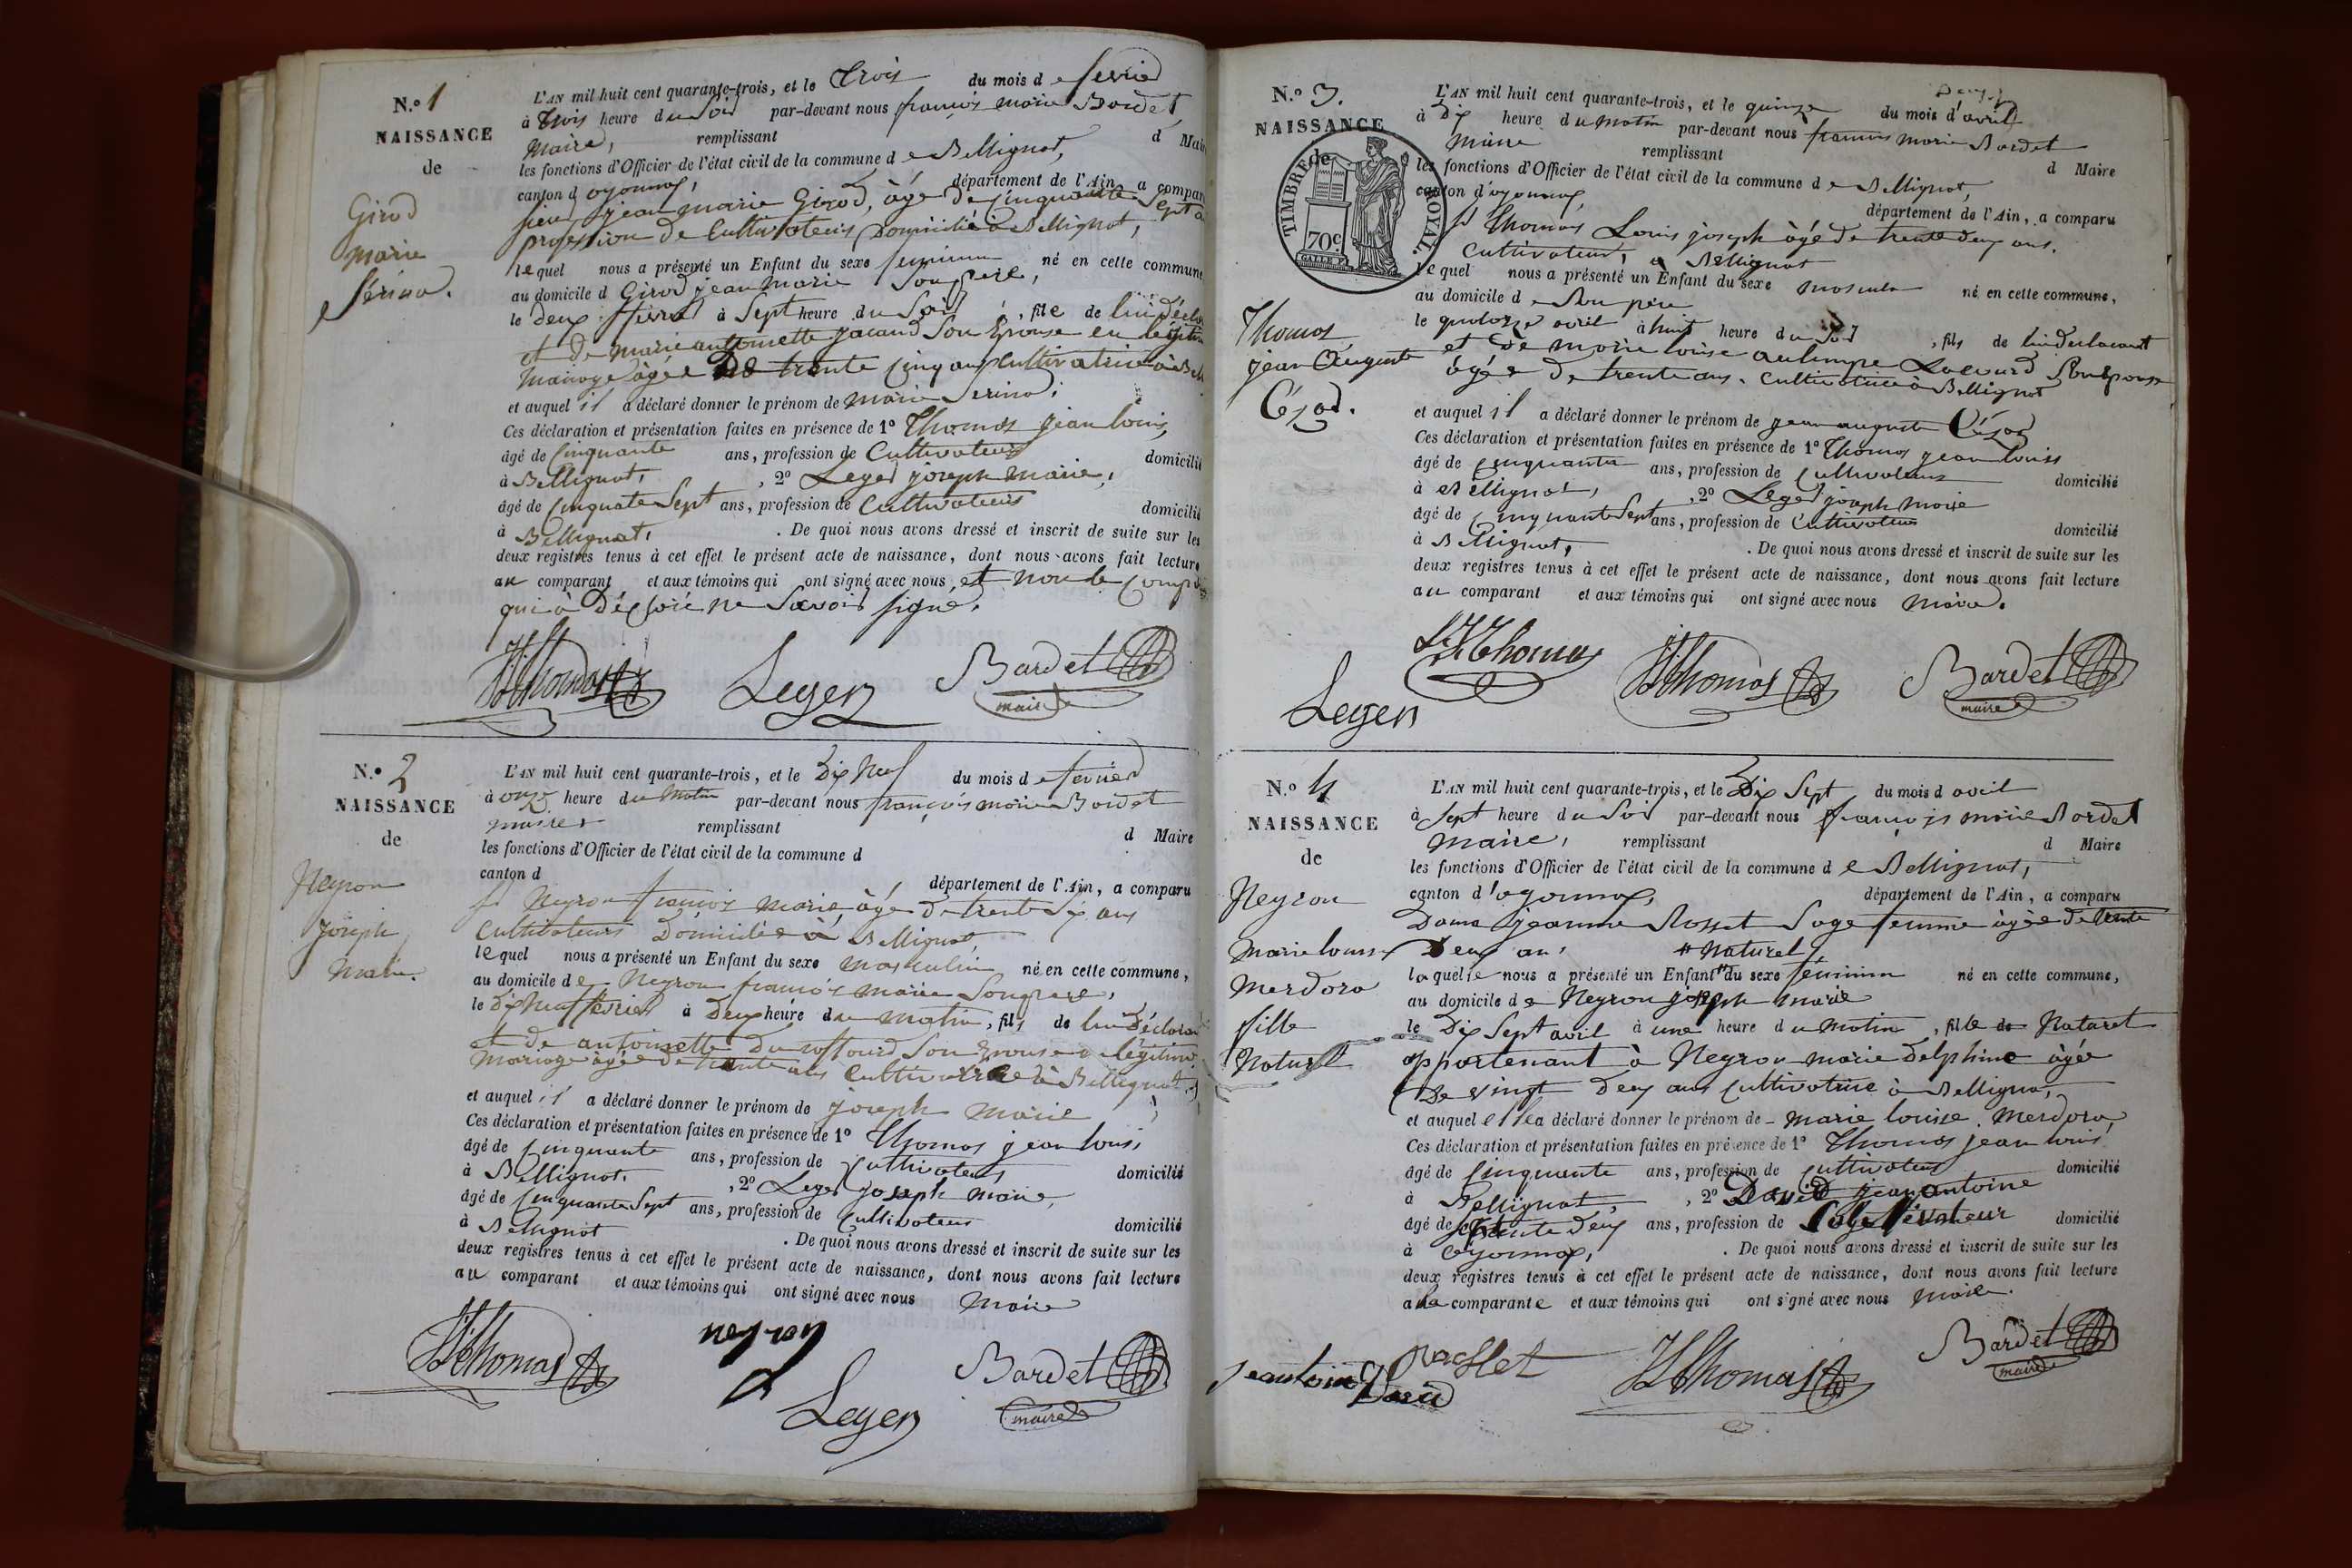 N.º 1
NAISSANCE
de
Girod
marie
Sérina.
L'AN mil huit cent quarante-trois, et le trois du mois de fevrier
à trois heure du Soir par-devant nous françois marie Bardet
Maire, remplissant d Maire
les fonctions d'Officier de l'état civil de la commune de Bellignat,
canton d oyonnax, département de l'Ain, a comparu
sieur jean marie Girod, âgé de Cinquante Sept a
profession de Cultivateur Domicilié à Bellignat,
lequel nous a présenté un Enfant du sexe feminin né en cette commune
au domicile d Girod jean marie Son père,
le deux fevrier à Sept heure du Soir, file de lui déclar
et de marie antoinette jacand Son Epouse en légitim
mariage âgée de trente cinq ans cultivatrice à Bell
et auquel il a déclaré donner le prénom de marie Serina.
Ces déclaration et présentation faites en présence de 1º Thomas jean louis,
âgé de Cinquante ans, profession de Cultivateur domicilié
à Bellignat, , 2º Leger joseph marie,
âgé de Cinquate Sept ans, profession de Cultivateur domicilié
à Bellignat, . De quoi nous avons dressé et inscrit de suite sur les
deux registres tenus à cet effet le présent acte de naissance, dont nous avons fait lecture
au comparant et aux témoins qui ont signé avec nous, et non le Comp
qui à Déclaré ne Savoir signé.
JLThomas Leger Bardet
maire
N.º 2
NAISSANCE
de
Neyron
Joseph
Marie.
L'AN mil huit cent quarante-trois, et le Dix Neuf du mois de fevrier
à onze heure du Matin par-devant nous françois marie Bardet
maire remplissant d Maire
les fonctions d'Officier de l'état civil de la commune d
canton d , département de l'Ain, a comparu
sr Neyron françois marie, âgé de trente Six ans
Cultivateur Domicilié à Bellignat,
lequel nous a présenté un Enfant du sexe masculin né en cette commune,
au domicile de Neyron françois marie Son père,
le Dix Neuf fevrier à Deux heure du matin, fils de lui Déclarant
et de antoinette Son Epouse légitime
mariage âgée de trente ans Cultivatrice à Bellignat
et auquel il a déclaré donner le prénom de joseph marie
Ces déclaration et présentation faites en présence de 1º Thomas jean louis,
âgé de Cinquante ans, profession de Cultivateur domicilié
à Bellignat. , 2º Leger joseph marie,
âgé de Cinquante Sept ans, profession de Cultivateur domicilié
à Bellignat . De quoi nous avons dressé et inscrit de suite sur les
deux registres tenus à cet effet le présent acte de naissance, dont nous avons fait lecture
au comparant et aux témoins qui ont signé avec nous Maire
JLThomas neyron Leger Bardet
maire
N.º 3.
NAISSANCE
de
TIMBRE ROYAL.
70c
Thomas
jean Auguste
Cézar.
L'AN mil huit cent quarante-trois, et le quinze du mois d'avril
à Dix heure du Matin par-devant nous francois marie Bardet
Maire remplissant d Maire
les fonctions d'Officier de l'état civil de la commune de Bellignat,
canton d'oyonnax, département de l'Ain, a comparu
sr Thomas Louis joseph âgé de trente deux ans.
Cultivateur, a Bellignat
lequel nous a présenté un Enfant du sexe masculin né en cette commune,
au domicile de Son père
le quatorze avril à huit heure du Soir, fils de lui declarant
et de marie louise Son Epouse
âgée de trente ans. Cultivatrice à Bellignat
et auquel il a déclaré donner le prénom de jean auguste Cézar
Ces déclaration et présentation faites en présence de 1º Thomas jean louis
âgé de Cinquante ans, profession de Cultivateur domicilié
à Bellignat, , 2º Leger joseph marie
âgé de Cinquante Sept ans, profession de Cultivateur domicilié
à Bellignat, . De quoi nous avons dressé et inscrit de suite sur les
deux registres tenus à cet effet le présent acte de naissance, dont nous avons fait lecture
au comparant et aux témoins qui ont signé avec nous Maire.
LJThomas
Leger JLThomas Bardet
maire
N.º 4
NAISSANCE
de
Neyron
Marie louise
Merdora
fille
Naturel
L'AN mil huit cent quarante-trois, et le Dix Sept du mois d avril
à Sept heure du Soir par-devant nous françois marie Bardet
Maire, remplissant d Maire
les fonctions d'Officier de l'état civil de la commune de Bellignat,
canton d'oyonnax, département de l'Ain, a comparu
Dame jeanne Rosset Sage femme âgée de trente
Deux ans # Naturel
laquelle nous a présenté un Enfant # du sexe féminin né en cette commune,
au domicile de Neyron joseph marie
le Dix Sept avril à une heure du Matin, fille de Naturel
appartenant à Neyron marie delphine âgée
De vingt deux ans Cultivatrice à Bellignat,
et auquel elle a déclaré donner le prénom de marie louise Merdora
Ces déclaration et présentation faites en présence de 1º Thomas jean louis
âgé de Cinquante ans, profession de Cultivateur domicilié
à Bellignat, , 2º David jean antoine
âgé de deux ans, profession de domicilié
à Oyonnax, . De quoi nous avons dressé et inscrit de suite sur les
deux registres tenus à cet effet le présent acte de naissance, dont nous avons fait lecture
a la comparante et aux témoins qui ont signé avec nous Maire.
David JLThomas Bardet
maire